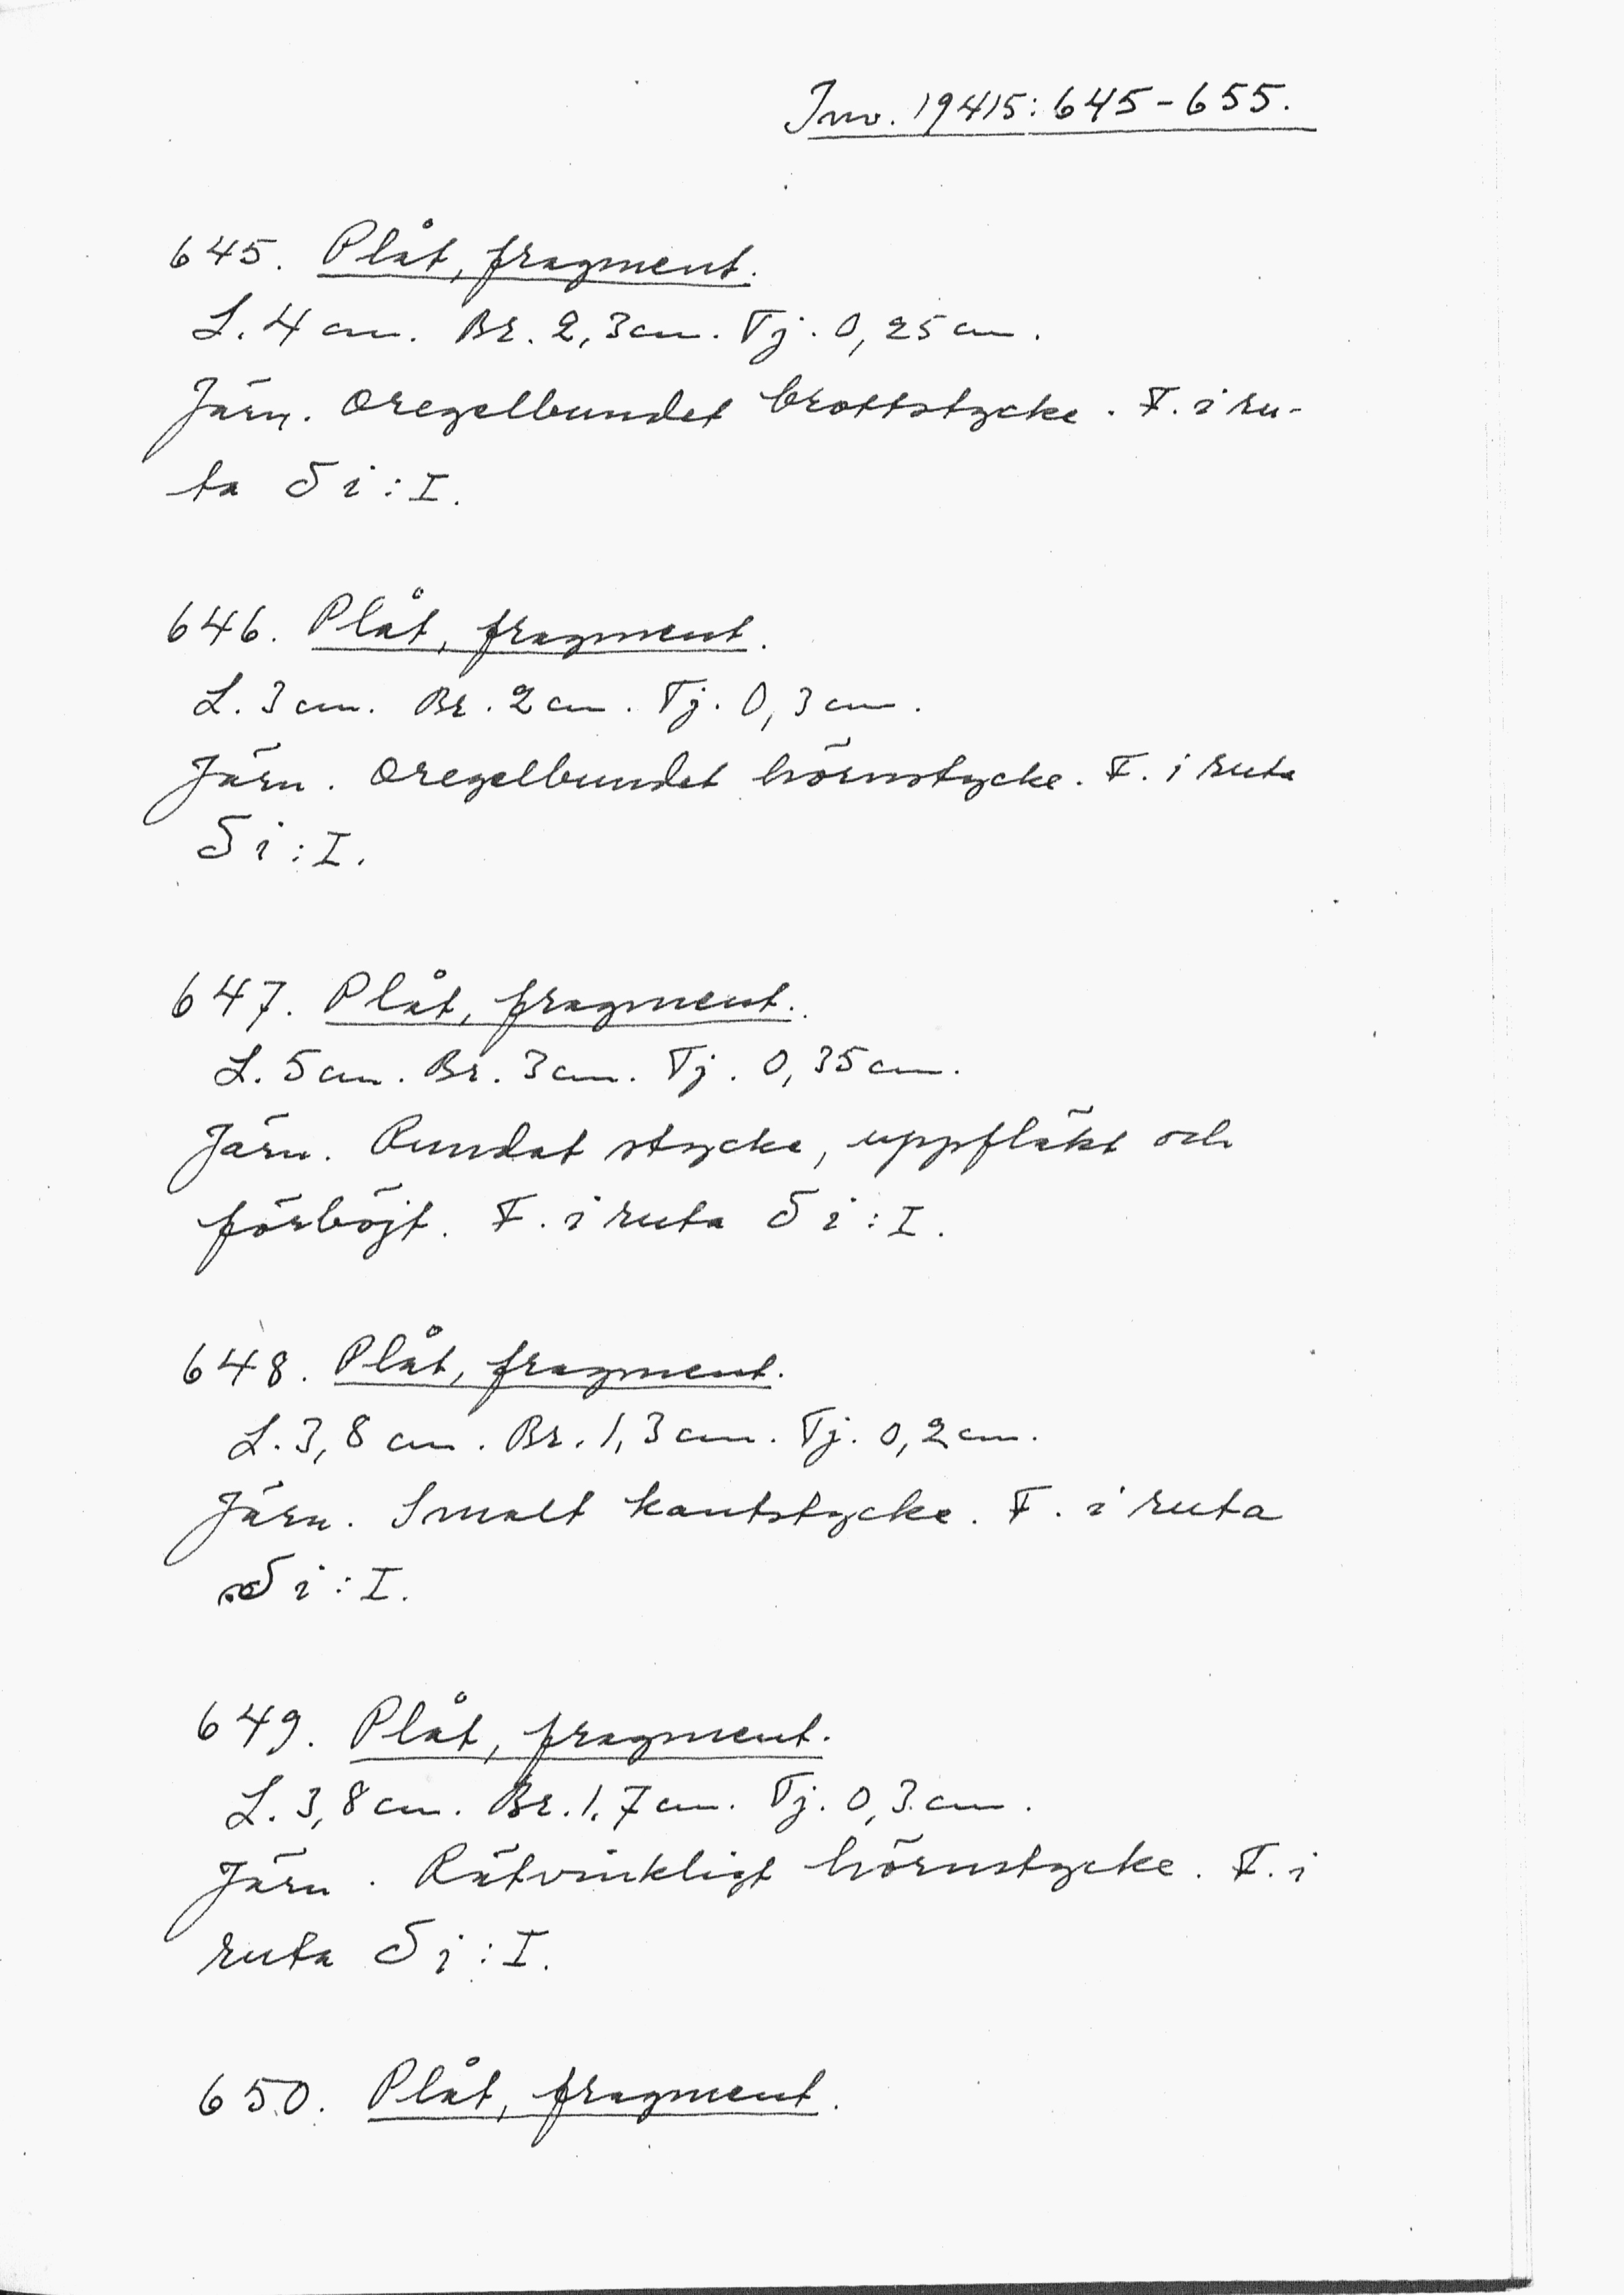 Inv. 19415:645-655.
645. Plåt, fragment.
L. 4 cm. Br. 2,3 cm. Tj. 0,25 cm.
Järn. Oregelbundet brottstycke. F. i ru-
ta S i : I.
646. Plåt, fragment.
L. 3 cm. Br. 2 cm. Tj. 0,3 cm.
Järn. Oregelbundet hörnstycke. F. i ruta
S i : I.
647. Plåt, fragment.
L. 5 cm. Br. 3 cm. Tj. 0,35 cm.
Järn. Rundat stycke, uppfläkt och
förböjt. F. i ruta S i : I.
648. Plåt, fragment.
L. 3,8 cm. Br. 1,3 cm. Tj. 0,2 cm.
Järn. Smalt kantstycke. F. i ruta
S i : I.
649. Plåt, fragment.
L. 3,8 cm. Br. 1,7 cm. Tj. 0,3 cm.
Järn. Rätvinkligt hörnstycke. F. i
ruta S i : I.
650. Plåt, fragment.